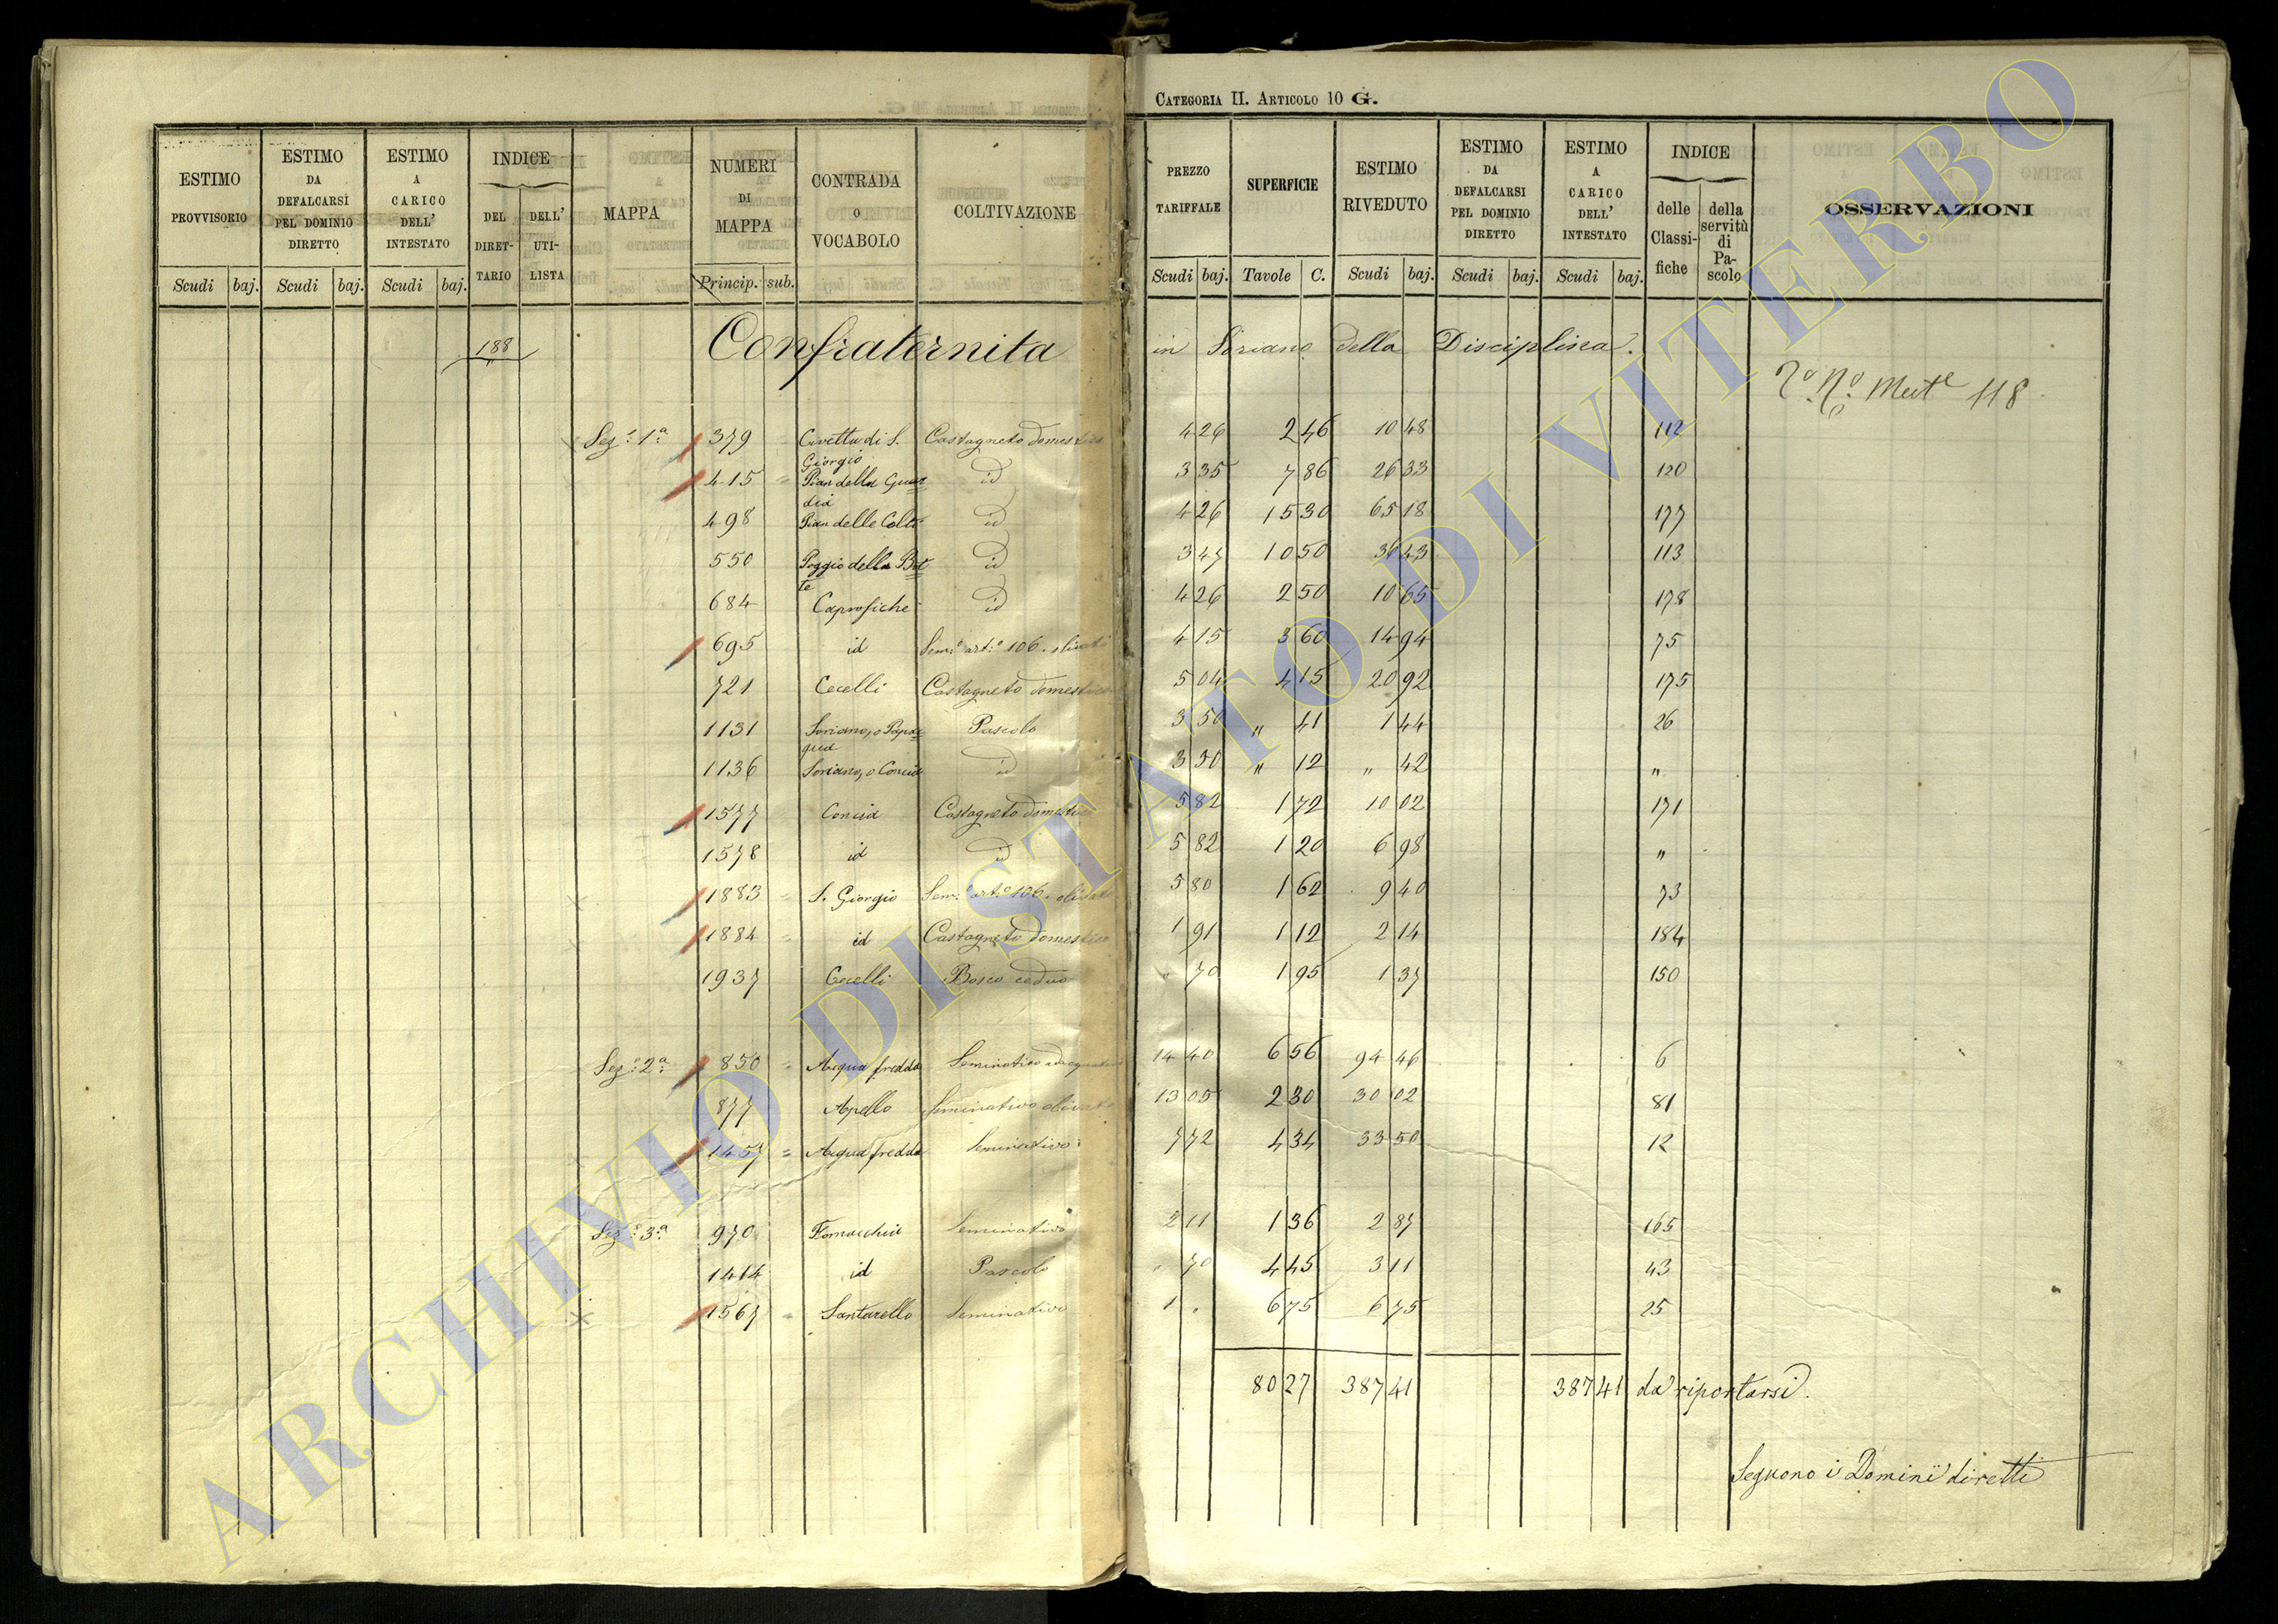 CATEGORIA II. ARTICOLO 10 G.
ESTIMO PROVVISORIO
ESTIMO DA DEFALCARSI PEL DOMINIO DIRETTO
ESTIMO A CARICO DELL' INTESTATO
INDICE
DEL DIRET-TARIO
DELL' UTI-LISTA
MAPPA
NUMERI DI MAPPA
CONTRADA O VOCABOLO
COLTIVAZIONE
PREZZO TARIFFALE
SUPERFICIE
ESTIMO RIVEDUTO
ESTIMO DA DEFALCARSI PEL DOMINIO DIRETTO
ESTIMO A CARICO DELL' INTESTATO
INDICE
delle Classi-fiche
della servitù di Pa-scolo
OSSERVAZIONI
Scudi baj. Scudi baj. Scudi baj. Princip. sub. Scudi baj. Tavole C. Scudi baj. Scudi baj. Scudi baj.
188 Confraternita in Soriano della Disciplina.
118
Sez.e 1a 379 Civetta di S. Giorgio Castagneto domestico 4 26 2 46 10 48 112
415 Pian della Guardia id 3 35 7 86 26 33 120
498 Pian delle Colte id 4 26 15 30 65 18 177
550 Poggio della Botte id 3 47 10 50 36 43 113
684 Caprofiche id 4 26 2 50 10 65 178
695 id Sem.o art.o 106. olivato 4 15 3 60 14 94 75
721 Cecelli Castagneto domestico 5 04 4 15 20 92 175
1131 Soriano, o Papacqua Pascolo 3 50 " 41 1 44 26
1136 Soriano, o Concia id 3 50 " 12 " 42 "
1577 Concia Castagneto domestico 5 82 1 72 10 02 171
1578 id id 5 82 1 20 6 98 "
1883 S. Giorgio Sem.o art.o 106. olivato 5 80 1 62 9 40 73
1884 id Castagneto domestico 1 91 1 12 2 14 184
1937 Cecelli Bosco ceduo " 70 1 95 1 37 150
Sez.e 2a 850 Acqua fredda Seminativo adacquativo 14 40 6 56 94 46 6
877 Apello Seminativo olivato 13 05 2 30 30 02 81
1457 Acqua fredda Seminativo 7 72 4 34 33 50 12
Sez.e 3a 970 Fornacchia Seminativo 2 11 1 36 2 87 165
1414 id Pascolo " 70 4 45 3 11 43
1567 Santarello Seminativo 1 " 6 75 6 75 25
80 27 387 41 387 41 da riportarsi.
Seguono i Dominii diretti
ARCHIVIO DI STATO DI VITERBO